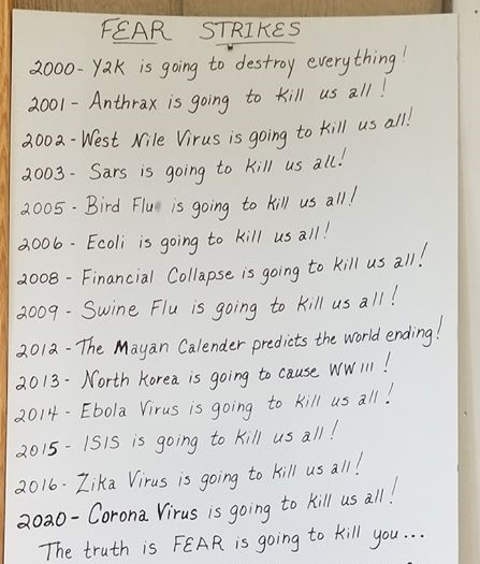 FEAR STRIKES
2000- Y2K is going to destroy everything!
2001- Anthrax is going to kill us all!
2002-West Nile Virus is going to kill us all!
2003- Sars is going to kill us all!
2005- Bird Flu is going to kill us all!
2006- Ecoli is going to kill us all!
2008- Financial Collapse is going to kill us all!
2009- Swine Flu is going to kill us all!
2012-The Mayan Calender predicts the world ending!
2013- North Korea is going to cause WW III!
2014- Ebola Virus is going to kill us all!
2015- ISIS is going to kill us all!
2016- Zika Virus is going to kill us all!
2020- Corona Virus is going to kill us all!
The truth is FEAR is going to kill you...